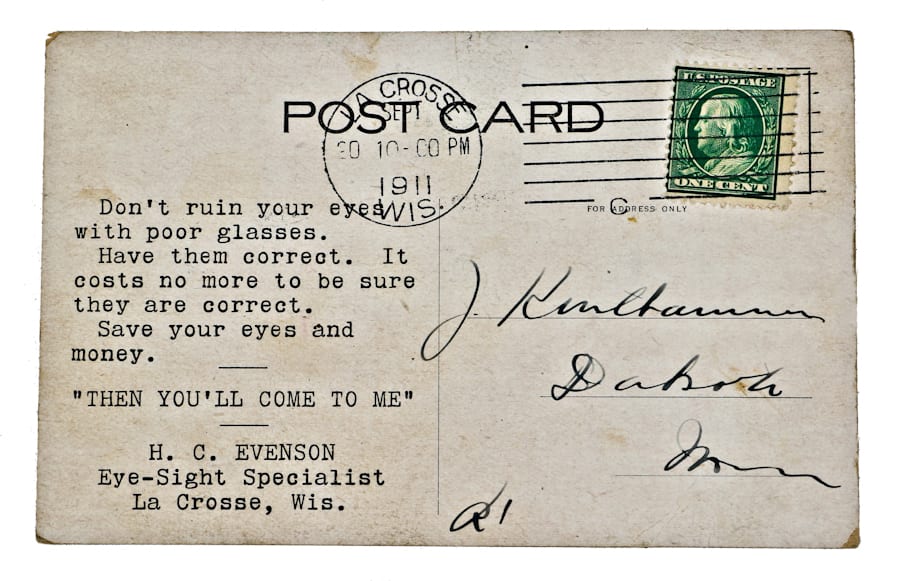 POST CARD
LA CROSSE
SEPT
30 10-00 PM
1911
WIS.
U.S. POSTAGE
ONE CENT
FOR ADDRESS ONLY
C
Don't ruin your eyes
with poor glasses.
Have them correct. It
costs no more to be sure
they are correct.
Save your eyes and
money.
"THEN YOU'LL COME TO ME"
H. C. EVENSON
Eye-Sight Specialist
La Crosse, Wis.
J.
Dakota
Minn
R1